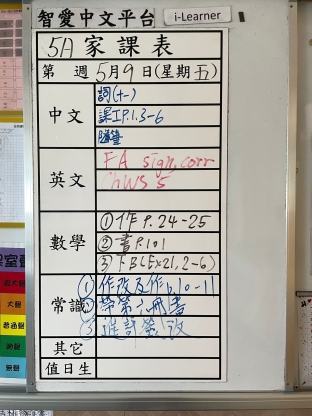 智愛中文平台 i-Learner
5A 家課表
第 週 5月9日(星期五)
中文
詞(十一)
課工P.1.3-6
英文
FA sign, corr
ChWS 5
數學
①作 P.24-25
②書P.101
③FB(Ex21, 2-6)
常識
①作改及作p.10-11
②帶第六冊書
③進評簽改
其它
值日生
大聲
普通聲